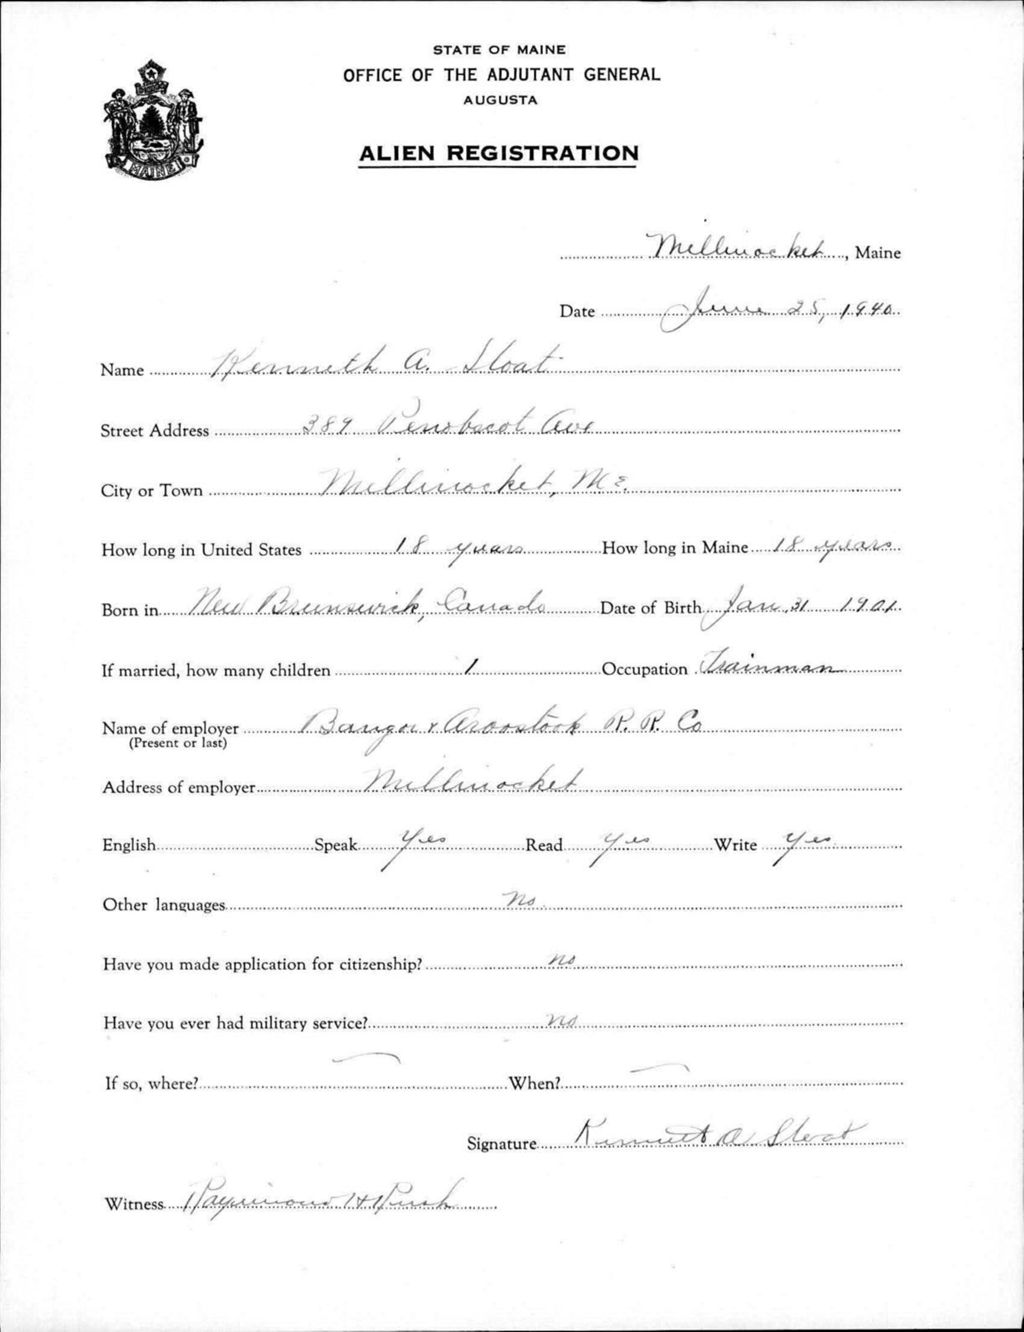 STATE OF MAINE
OFFICE OF THE ADJUTANT GENERAL
AUGUSTA
ALIEN REGISTRATION
MAINE
Millinocket, Maine
Date June 25, 1940
Name Kenneth A. Sloat
Street Address 389 Penobscot Ave
City or Town Millinocket, Me.
How long in United States 18 years How long in Maine 18 years
Born in New Brunswick, Canada Date of Birth Jan. 31 1901
If married, how many children 1 Occupation Trainman
Name of employer Bangor & Aroostook R. R. Co
(Present or last)
Address of employer Millinocket
English Speak Yes Read Yes Write Yes
Other languages No
Have you made application for citizenship? no
Have you ever had military service? no
If so, where? When?
Signature Kenneth A Sloat
Witness Raymond H